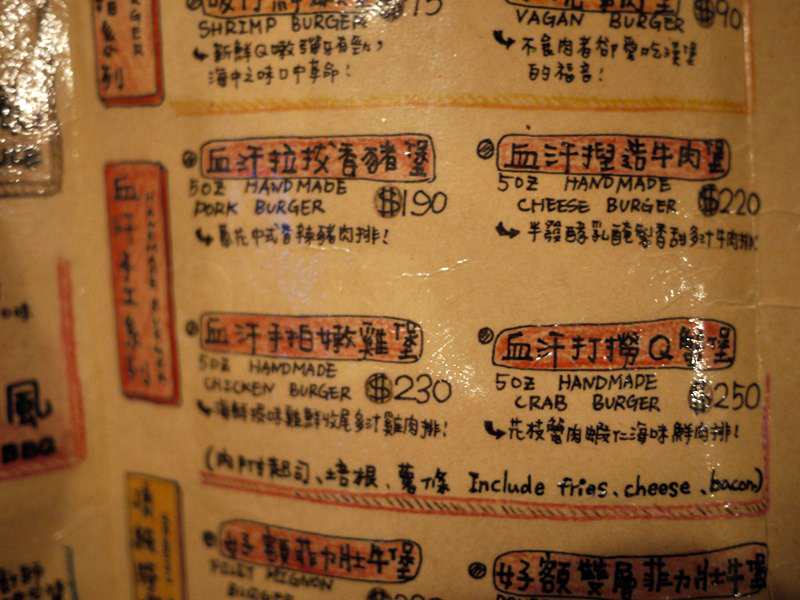 SHRIMP BURGER
新鮮Q嫩彈牙有勁,
海中之味口中革命!
VAGAN BURGER $90
不食肉者卻愛吃漢堡
的福音!
血汗手工系列
血汗拉拔香豬堡
5OZ HANDMADE
PORK BURGER $190
蔥花中式香辣豬肉排!
血汗捏造牛肉堡
5OZ HANDMADE
CHEESE BURGER $220
半發酵乳醃製香甜多汁牛肉排!
血汗手拍嫩雞堡
5OZ HANDMADE
CHICKEN BURGER $230
海鮮提味雞鮮收尾多汁雞肉排!
血汗打撈Q蟹堡
5OZ HANDMADE
CRAB BURGER $250
花枝蟹肉蝦仁海味鮮肉排!
(內附起司、培根、薯條 Include fries、cheese、bacon)
風
BBQ
好額菲力壯牛堡
FILET MIGNON
BURGER
好額雙層菲力壯牛堡